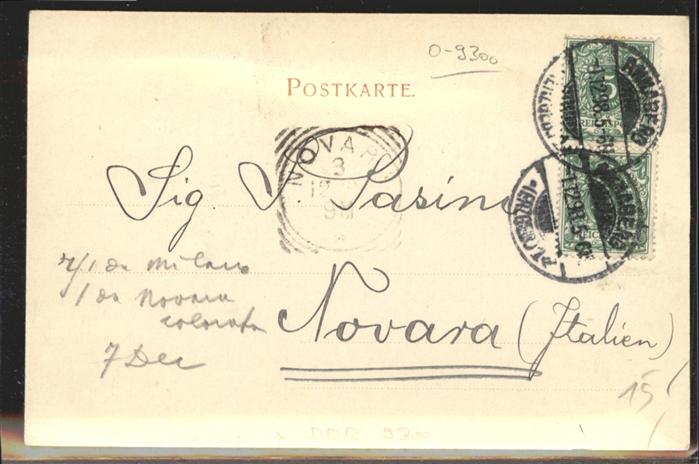 0-9300
POSTKARTE.
5
1.12.98.5-6N
NOVARA
3
12
98
Sig. S. Pasini
Novara (Italien)
2/1 da Milano
1 da Novara
colorata
7 Dec
15
DDR 9300